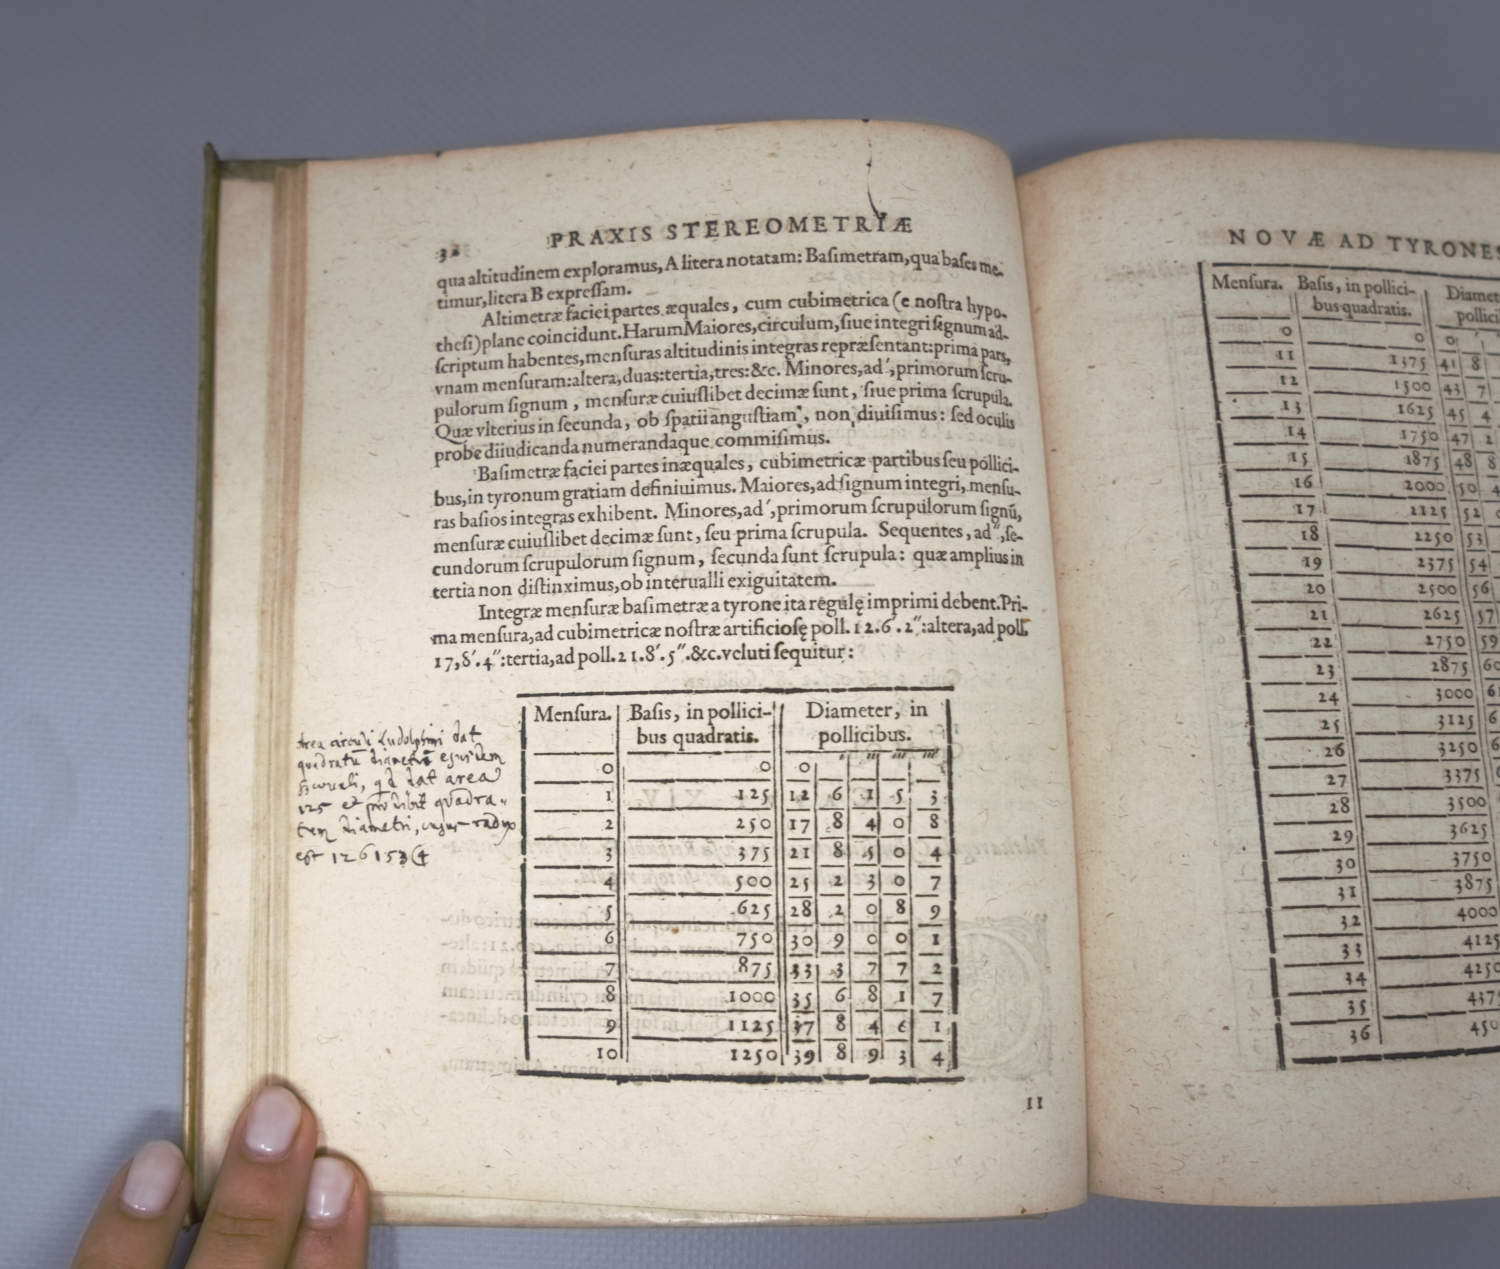 32
PRAXIS STEREOMETRIÆ
qua altitudinem exploramus, A litera notatam: Basimetram, qua bases me-
timur, litera B expressam.
Altimetræ faciei partes æquales, cum cubimetrica (e nostra hypo-
thesi) plane coincidunt. Harum Maiores, circulum, siue integri signum ad-
scriptum habentes, mensuras altitudinis integras repræsentant: prima pars,
vnam mensuram: altera, duas: tertia, tres: &c. Minores, ad ′, primorum scru-
pulorum signum, mensuræ cuiuslibet decimæ sunt, siue prima scrupula.
Quæ vlterius in secunda, ob spatii angustiam, non diuisimus: sed oculis
probe diiudicanda numerandaque commisimus.
Basimetræ faciei partes inæquales, cubimetricæ partibus seu pollici-
bus, in tyronum gratiam definiuimus. Maiores, ad signum integri, mensu-
ras basios integras exhibent. Minores, ad ′, primorum scrupulorum signū,
mensuræ cuiuslibet decimæ sunt, seu prima scrupula. Sequentes, ad ″, se-
cundorum scrupulorum signum, secunda sunt scrupula: quæ amplius in
tertia non distinximus, ob interualli exiguitatem.
Integræ mensuræ basimetræ a tyrone ita regulę imprimi debent. Pri-
ma mensura, ad cubimetricæ nostræ artificiosę poll. 12.6′.2″: altera, ad poll.
17,8′.4″: tertia, ad poll. 21.8′.5″. &c. veluti sequitur:
Mensura. Basis, in pollici- Diameter, in
bus quadratis. pollicibus.
0 0 0
1 125 12 6 1 5 3
2 250 17 8 4 0 8
3 375 21 8 5 0 4
4 500 25 2 3 0 7
5 625 28 2 0 8 9
6 750 30 9 0 0 1
7 875 33 3 7 7 2
8 1000 35 6 8 1 7
9 1125 37 8 4 6 1
10 1250 39 8 9 3 4
Area circuli Ludolphini dat
quadratū diametri ejusdem
circuli, qd dat area
125 et quadra-
tum diametri, cujus radix
est 126153
11
NOVÆ AD TYRONES
Mensura. Basis, in pollici- Diamet
bus quadratis. pollici
0 0 0
11 1375 41 8
12 1500 43 7
13 1625 45 4
14 1750 47 2
15 1875 48 8
16 2000 50 4
17 2125 52
18 2250 53
19 2375 54
20 2500 56
21 2625 57
22 2750 59
23 2875 60
24 3000 6
25 3125 6
26 3250 6
27 3375
28 3500
29 3625
30 3750
31 3875
32 4000
33 4125
34 4250
35 437
36 450